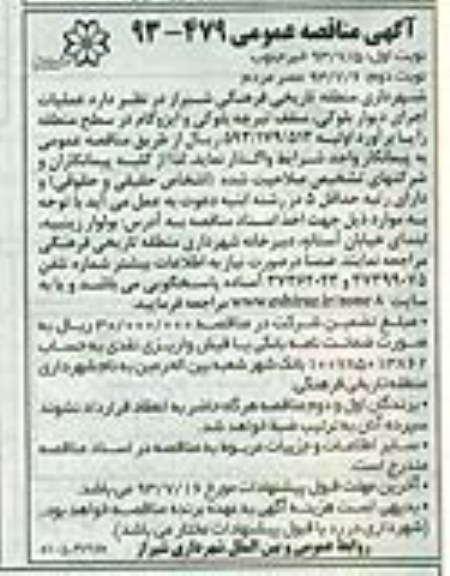 آگهی مناقصه عمومی ۴۷۹-۹۳
نوبت اول: ۹۳/۷/۵ خبرجنوب
نوبت دوم: ۹۳/۷/۶ عصر مردم
شهرداری منطقه تاریخی فرهنگی شیراز در نظر دارد عملیات
اجرای دیوار بلوکی، سقف تیرچه بلوکی و ایزوگام در سطح منطقه
را با برآورد اولیه ریال از طریق مناقصه عمومی
به پیمانکار واجد شرایط واگذار نماید. لذا از کلیه پیمانکاران و
شرکتهای تشخیص صلاحیت شده (اشخاص حقیقی و حقوقی) و
دارای رتبه حداقل ۵ در رشته ابنیه دعوت به عمل می آید با توجه
به موارد ذیل جهت اخذ اسناد مناقصه به آدرس: بولوار زینبیه،
ابتدای خیابان آستانه، دبیرخانه شهرداری منطقه تاریخی فرهنگی
مراجعه نمایند. ضمنا در صورت نیاز به اطلاعات بیشتر شماره تلفن
آماده پاسخگویی می باشند و یا به
سایت مراجعه فرمایید.
• مبلغ تضمین شرکت در مناقصه ۳۰/۰۰۰/۰۰۰ ریال به
صورت ضمانت نامه بانکی یا فیش واریزی نقدی به حساب
بانک شهر شعبه بین الحرمین به نام شهرداری
منطقه تاریخی فرهنگی.
• برندگان اول و دوم مناقصه هرگاه حاضر به انعقاد قرارداد نشوند
سپرده آنان به ترتیب ضبط خواهد شد.
• سایر اطلاعات و جزییات مربوط به مناقصه در اسناد مناقصه
مندرج است.
• آخرین مهلت قبول پیشنهادات مورخ ۹۳/۷/۱۶ می باشد.
• بدیهی است هزینه آگهی به عهده برنده مناقصه خواهد بود.
(شهرداری در رد یا قبول پیشنهادات مختار می باشد)
روابط عمومی و بین الملل شهرداری شیراز